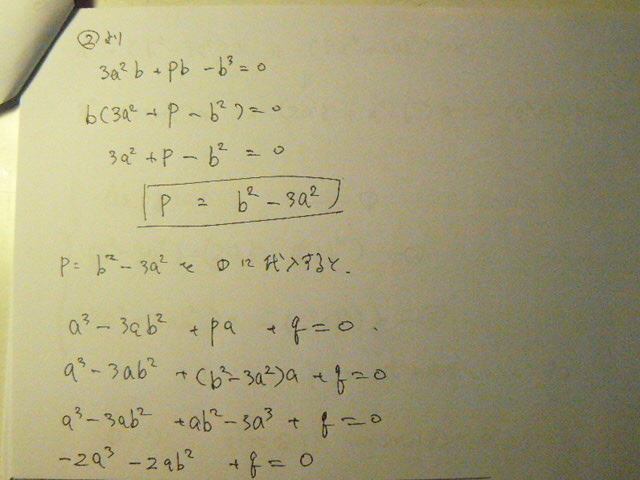 ②より
3a²b + pb - b³ = 0
b(3a² + p - b²) = 0
3a² + p - b² = 0
p = b² - 3a²
p = b² - 3a² を ①に代入すると、
a³ - 3ab² + pa + q = 0.
a³ - 3ab² + (b² - 3a²)a + q = 0
a³ - 3ab² + ab² - 3a³ + q = 0
-2a³ - 2ab² + q = 0